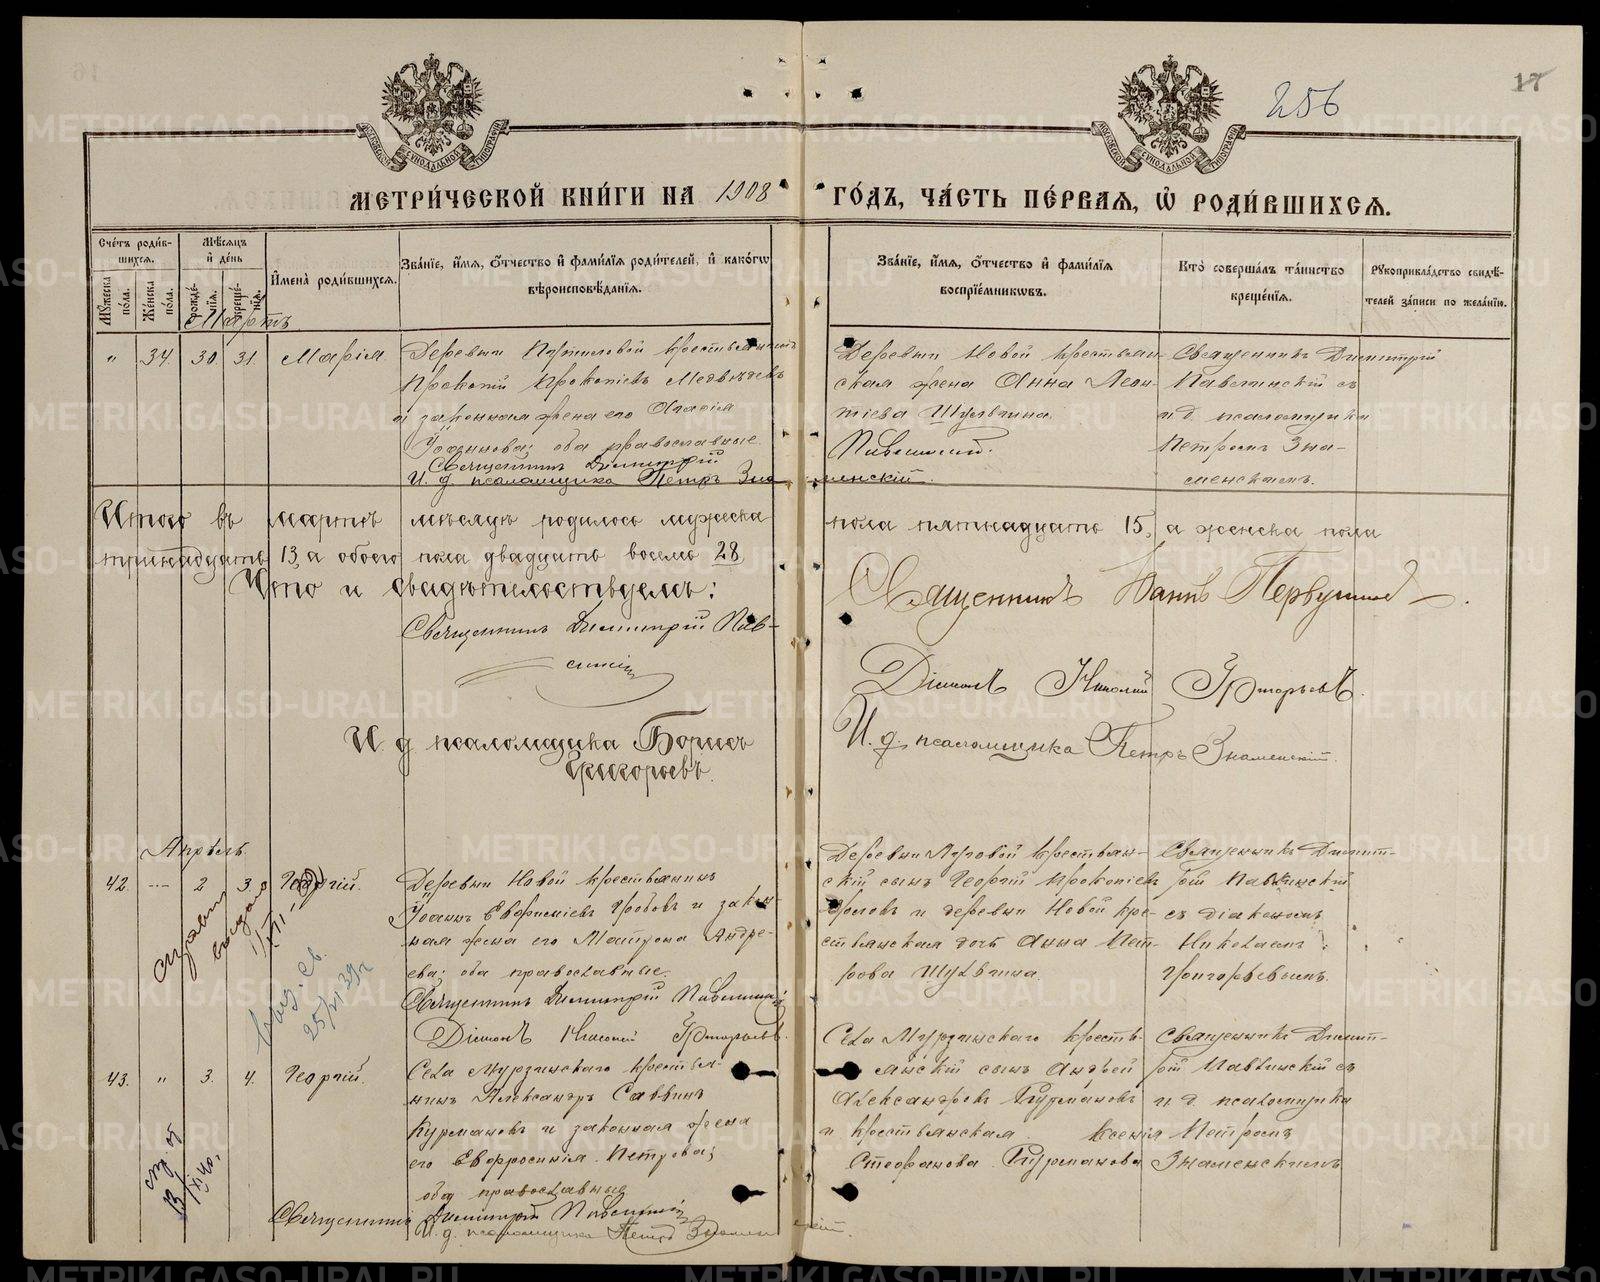 256
17
МОСКОВСКОЙ СѴНОДАЛЬНОЙ ТИПОГРАФІИ
МОСКОВСКОЙ СѴНОДАЛЬНОЙ ТИПОГРАФІИ
МЕТРИ́ЧЕСКОЙ КНИ́ГИ НА 1908 ГО́ДЪ, ЧА́СТЬ ПЕ́РВАѦ, Ѡ҆ РОДИ́ВШИХСѦ.
Сче́тъ роди́вшихсѧ.
Мꙋ́жеска по́ла.
Же́нска по́ла.
Мѣ́сѧцъ и҆ де́нь
рожде́нїѧ.
креще́нїѧ.
И҆мена̀ роди́вшихсѧ.
Зва́нїе, и҆́мѧ, ѻ҆́тчество и҆ фами́лїѧ роди́телей, и҆ како́гѡ вѣроисповѣ́данїѧ.
Зва́нїе, и҆́мѧ, ѻ҆́тчество и҆ фами́лїѧ воспрїе́мникѡвъ.
Кто̀ соверша́лъ та́инство креще́нїѧ.
Рꙋкоприкла́дство свидѣ́телей за́писи по жела́нїю.
Мартъ
" 34. 30. 31. Марія
Деревни крестьянинъ
Прокопій Прокопіевъ Медвѣдевъ
и законная жена его
Іоаннова; оба православные.
Священникъ Димитрій
И. д. псаломщика Петръ Знаменскій.
Деревни Новой крестьян-
ская жена Анна Леон-
тіева Шульгина.
Священникъ Димитрій
Павлинскій съ
и. д. псаломщика
Петромъ Зна-
менскимъ.
Итого въ мартѣ мѣсяцѣ родилось мужеска пола пятнадцать 15, а женска пола
тринадцать 13, а обоего пола двадцать восемь 28
Что и свидѣтельствуемъ:
Священникъ Димитрій Пав-
линскій
И. д. псаломщика Борисъ
Григорьевъ.
Священникъ Іоаннъ Первушинъ.
Діаконъ Николай Григорьевъ.
И. д. псаломщика Петръ Знаменскій.
Апрѣль.
42. — 2 3. Георгій.
Деревни Новой крестьянинъ
Іоаннъ Евфиміевъ Глобовъ и закон-
ная жена его Матрона Андре-
ева; оба православные.
Священникъ Димитрій Павлинскій
Діаконъ Николай Григорьевъ.
Деревни Луговой крестьян-
скій сынъ Георгій Прокопіевъ
Фроловъ и деревни Новой кре-
стьянская дочь Анна Пет-
рова Шульгина.
Священникъ Димит-
рій Павлинскій
съ діакономъ
Николаемъ
Григорьевымъ.
справку
выдана
Выд. св.
25/VI 39 г
43. " 3. 4. Георгій.
Села Мурзинскаго крестья-
нинъ Александръ Саввинъ
Курмановъ и законная жена
его Евфросинія Петрова;
оба православные
Священникъ Димитрій Павлинскій
И. д. псаломщика Петръ Знаменскій.
Села Мурзинскаго кресть-
янскій сынъ Андрей
Александровъ Курмановъ
и крестьянская Ксенія
Стефанова Курманова
Священникъ Димит-
рій Павлинскій съ
и. д. псаломщика
Петромъ
Знаменскимъ
METRIKI.GASO-URAL.RU